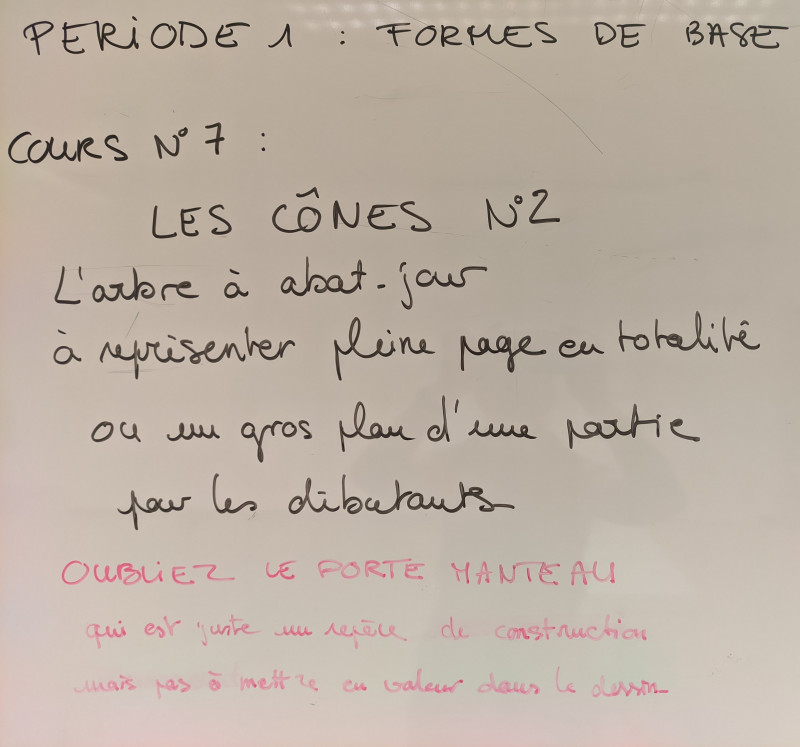 PERIODE 1 : FORMES DE BASE
COURS N°7 :
LES CÔNES N°2
L'arbre à abat-jour
à représenter pleine page en totalité
ou un gros plan d'une partie
pour les débutants
OUBLIEZ LE PORTE MANTEAU
qui est juste un repère de construction
mais pas à mettre en valeur dans le dessin